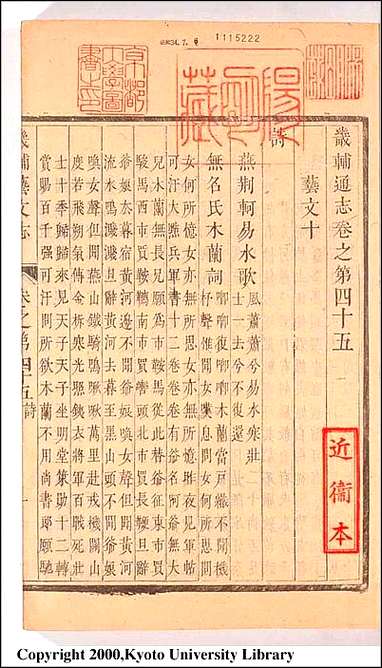 昭和4.7.
1115222
京都
大學圖
書之印
近衞本
畿輔通志卷之第四十五
藝文十
詩
燕荊軻易水歌 風蕭蕭兮易水寒壯
士一去兮不復還
無名氏木蘭詞 唧唧復唧唧木蘭當戶織不聞機
杼聲惟聞女嘆息問女何所思問
女何所憶女亦無所思女亦無所憶昨夜見軍帖
可汗大點兵軍書十二卷卷卷有爺名阿爺無大
兒木蘭無長兄願爲市鞍馬從此替爺征東市買
駿馬西市買鞍韉南市買轡頭北市買長鞭旦辭
爺孃去暮宿黃河邊不聞爺孃喚女聲但聞黃河
流水鳴濺濺旦辭黃河去暮至黑山頭不聞爺孃
喚女聲但聞燕山鐵騎鳴啾啾萬里赴戎機關山
度若飛朔氣傳金柝寒光照鐵衣將軍百戰死壯
士十年歸歸來見天子天子坐明堂策勛十二轉
賞賜百千强可汗問所欲木蘭不用尚書郎願馳
畿輔藝文志 卷之第四十五 詩 一
Copyright 2000,Kyoto University Library